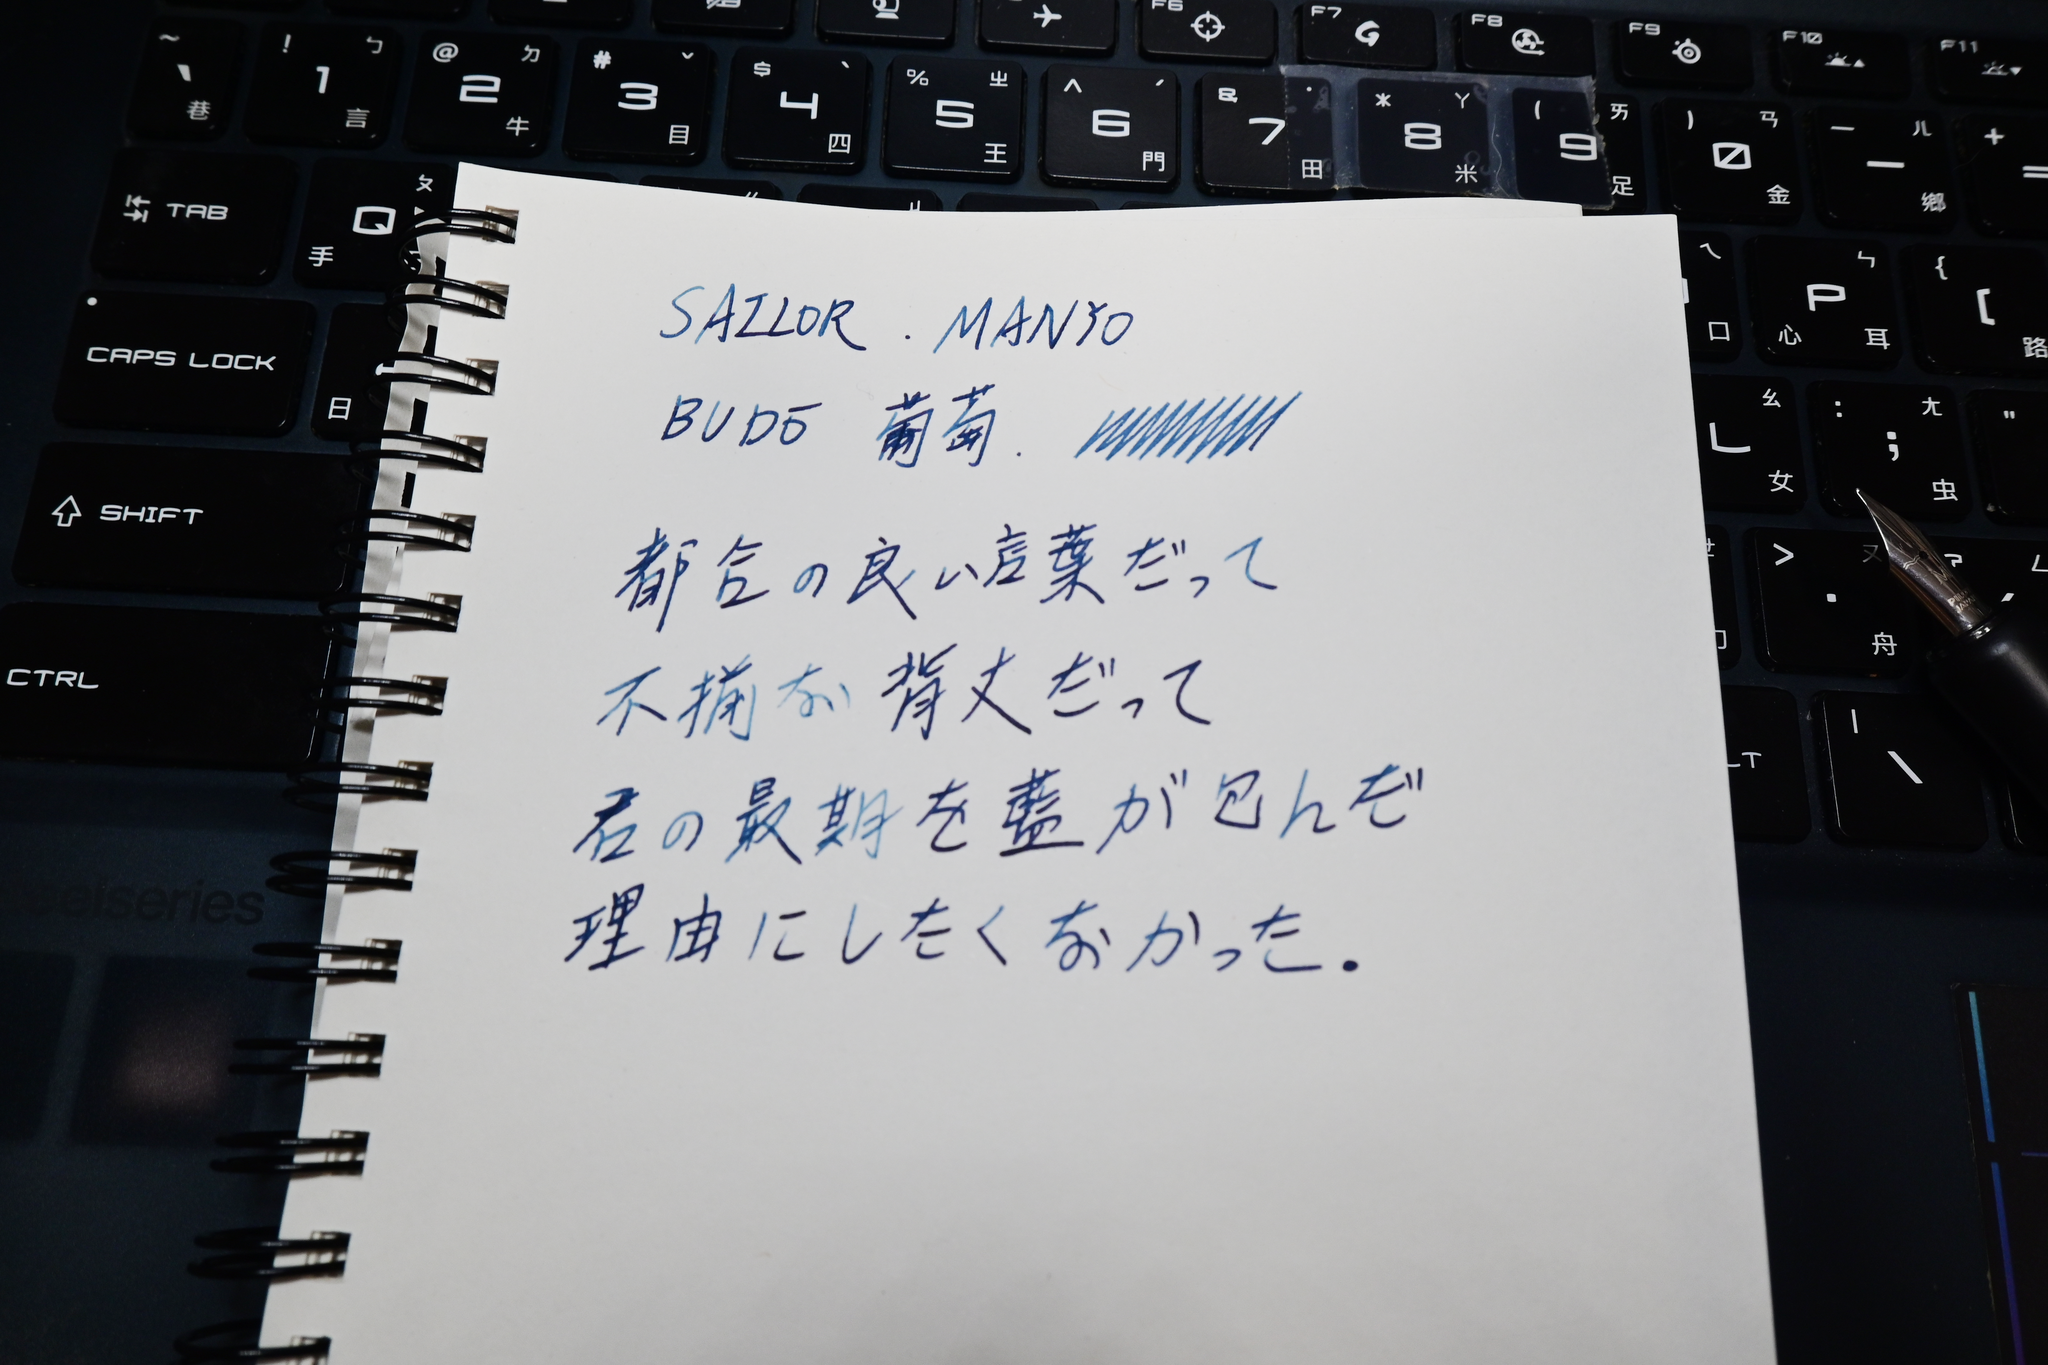 F6 F7 F8 F9 F10 F11
~ ` 巷 ! 1 ㄅ 言 @ 2 ㄉ 牛 # 3 ˇ 目 $ 4 ˋ 四 % 5 ㄓ 王 ^ 6 ˊ 門 & 7 ˙ 田 * 8 ㄚ 米 ( 9 ㄞ 足 ) 0 ㄢ 金 — - ㄦ 鄉 + =
TAB Q ㄆ 手 ㄟ 口 P ㄣ 心 耳 { [ 路
CAPS LOCK 日 L ㄠ 女 : ; ㄤ 虫 "
SHIFT > . ㄡ 舟
CTRL | \
SAILOR . MANYO
BUDO 葡萄.
都合の良い言葉だって
不揃な背丈だって
君の最期を藍が包んだ
理由にしたくなかった.
selseries